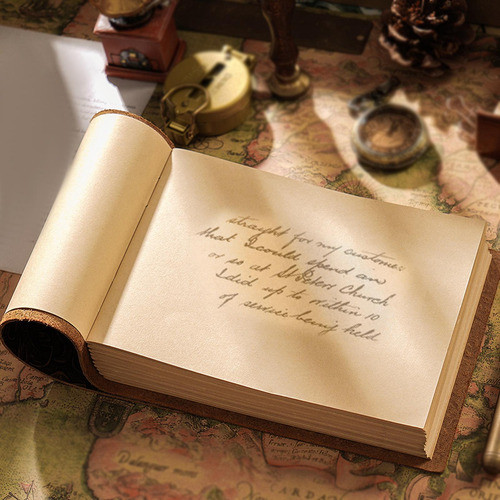 straight for my customer
that I could spend an
or so at Modern Church
I did up to within 10
of service being held